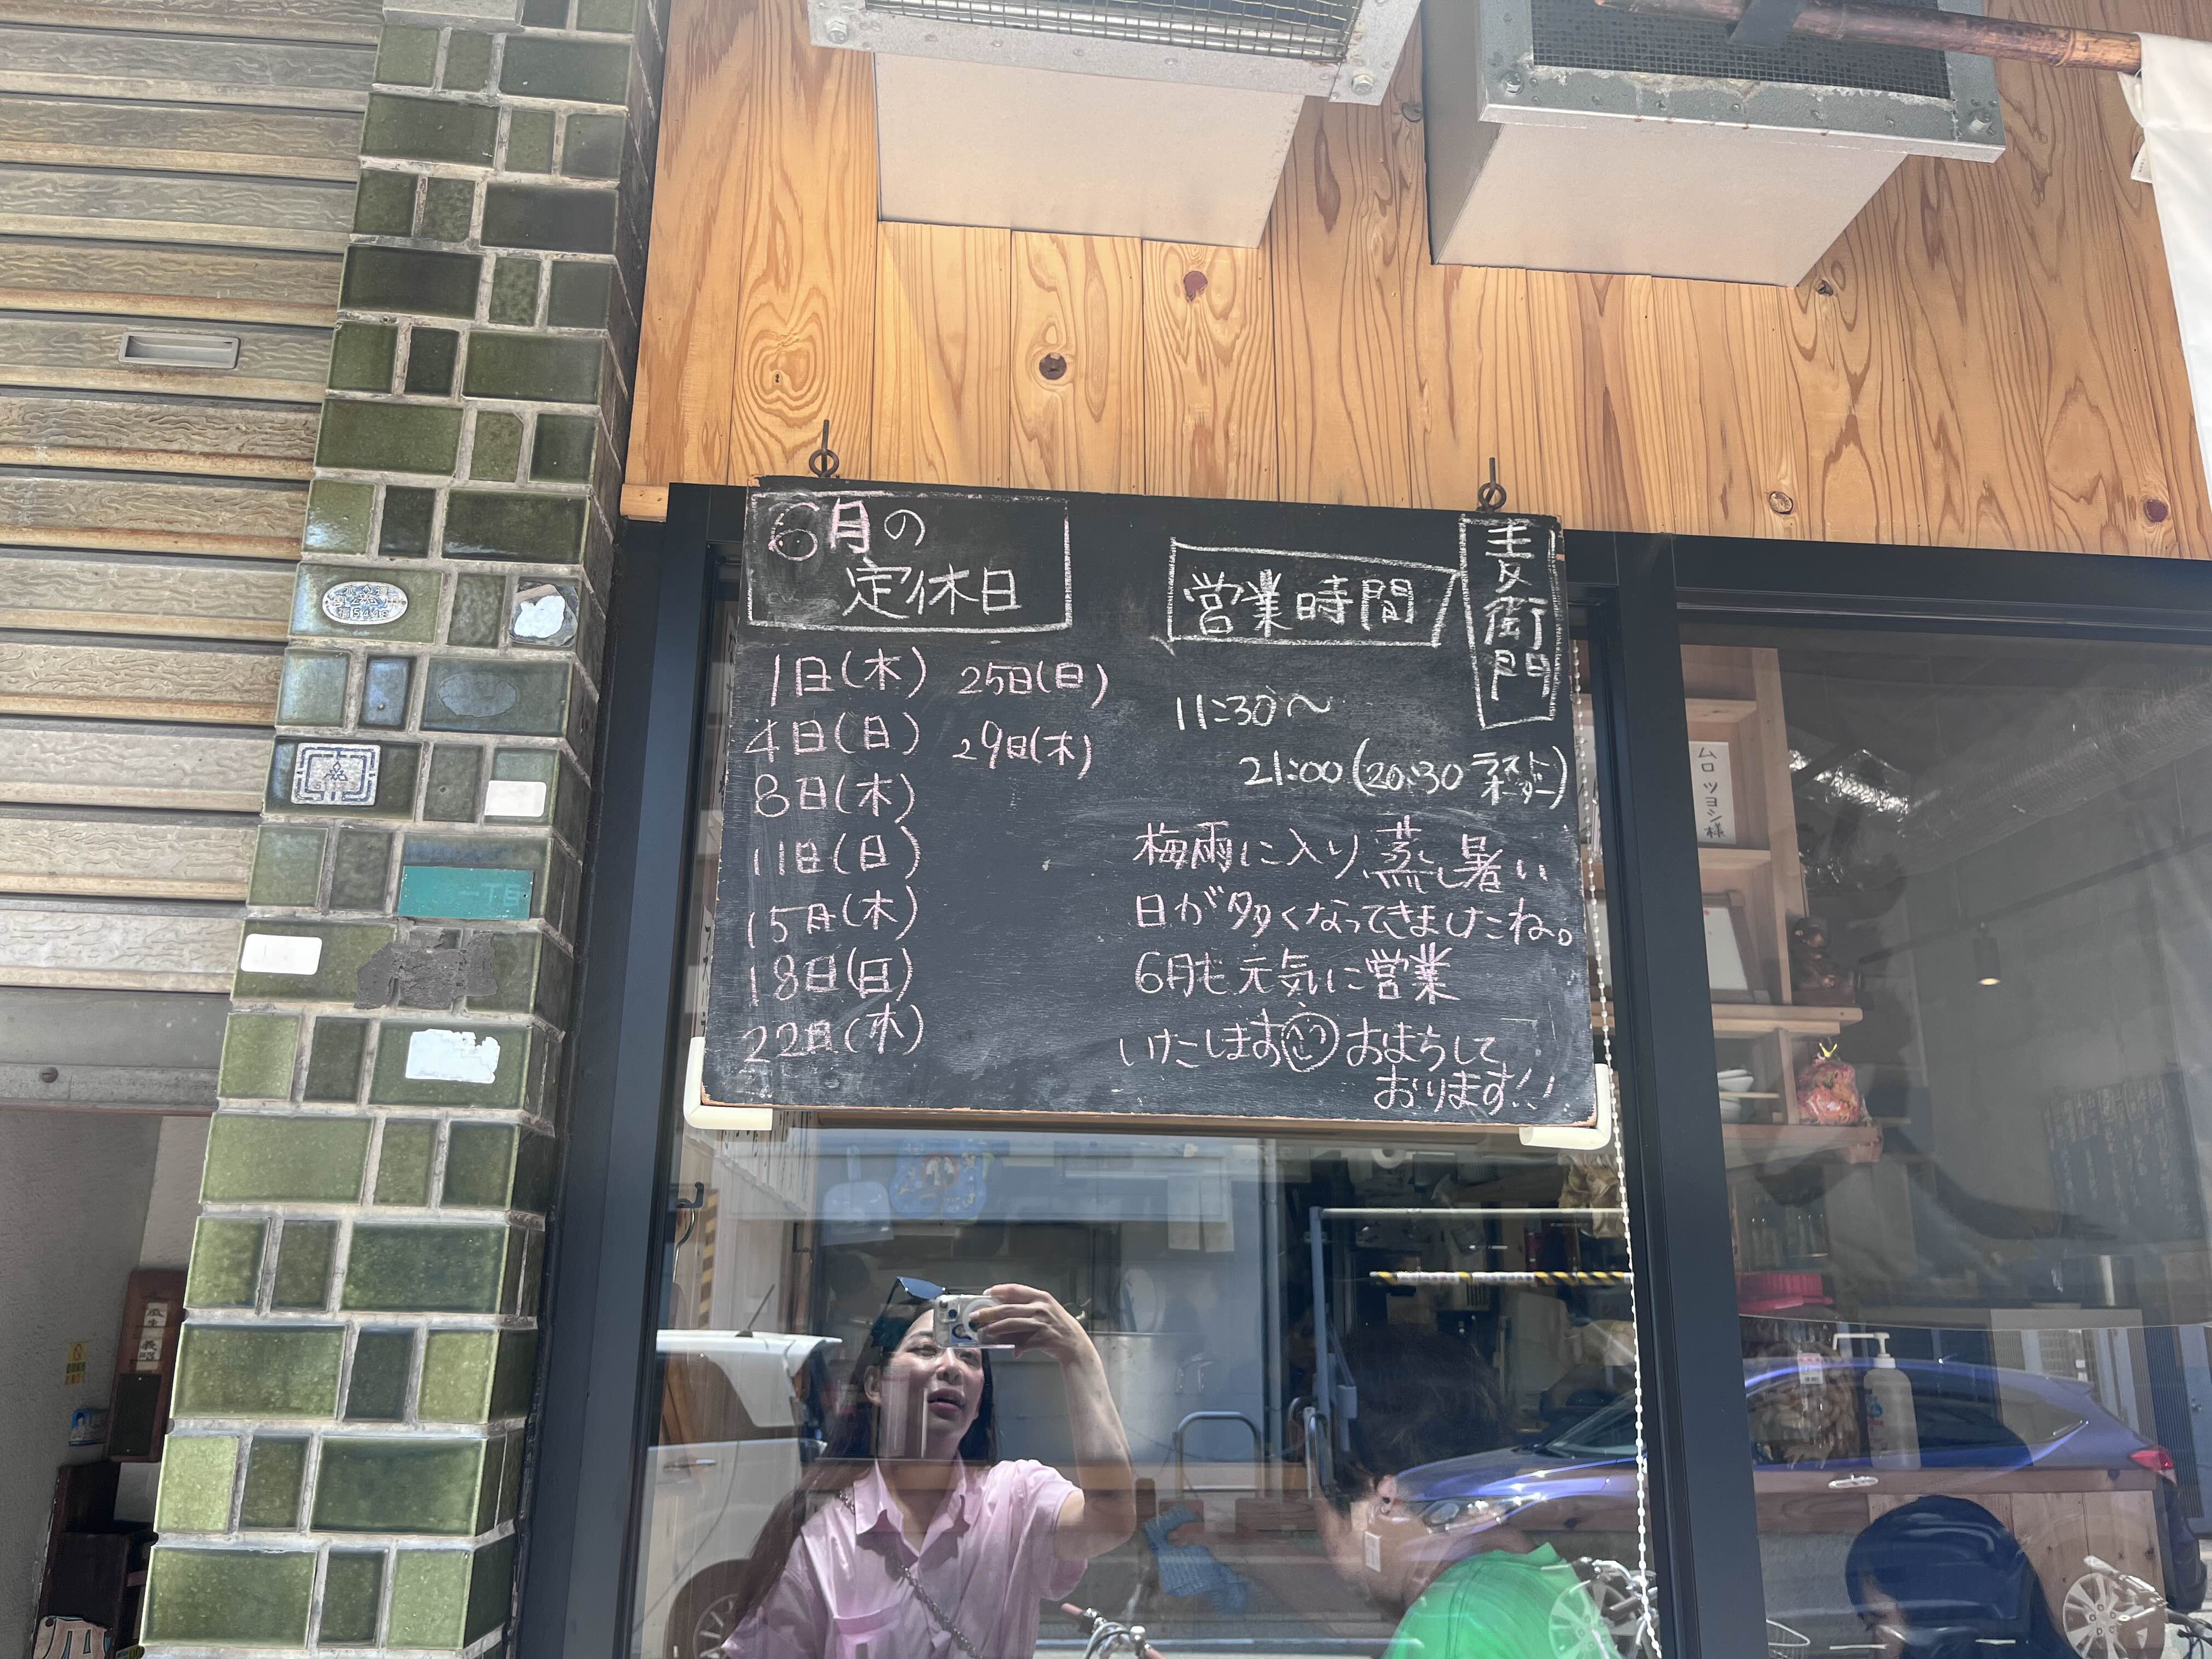 6月の
定休日
1日(木)
4日(日)
8日(木)
11日(日)
15日(木)
18日(日)
22日(木)
25日(日)
29日(木)
営業時間
11:30〜
21:00(20:30 ラストオーダー)
麦衛門
梅雨に入り、蒸し暑い
日が多くなってきましたね。
6月も元気に営業
いたします おまちして
おります!!
ムロツヨシ様